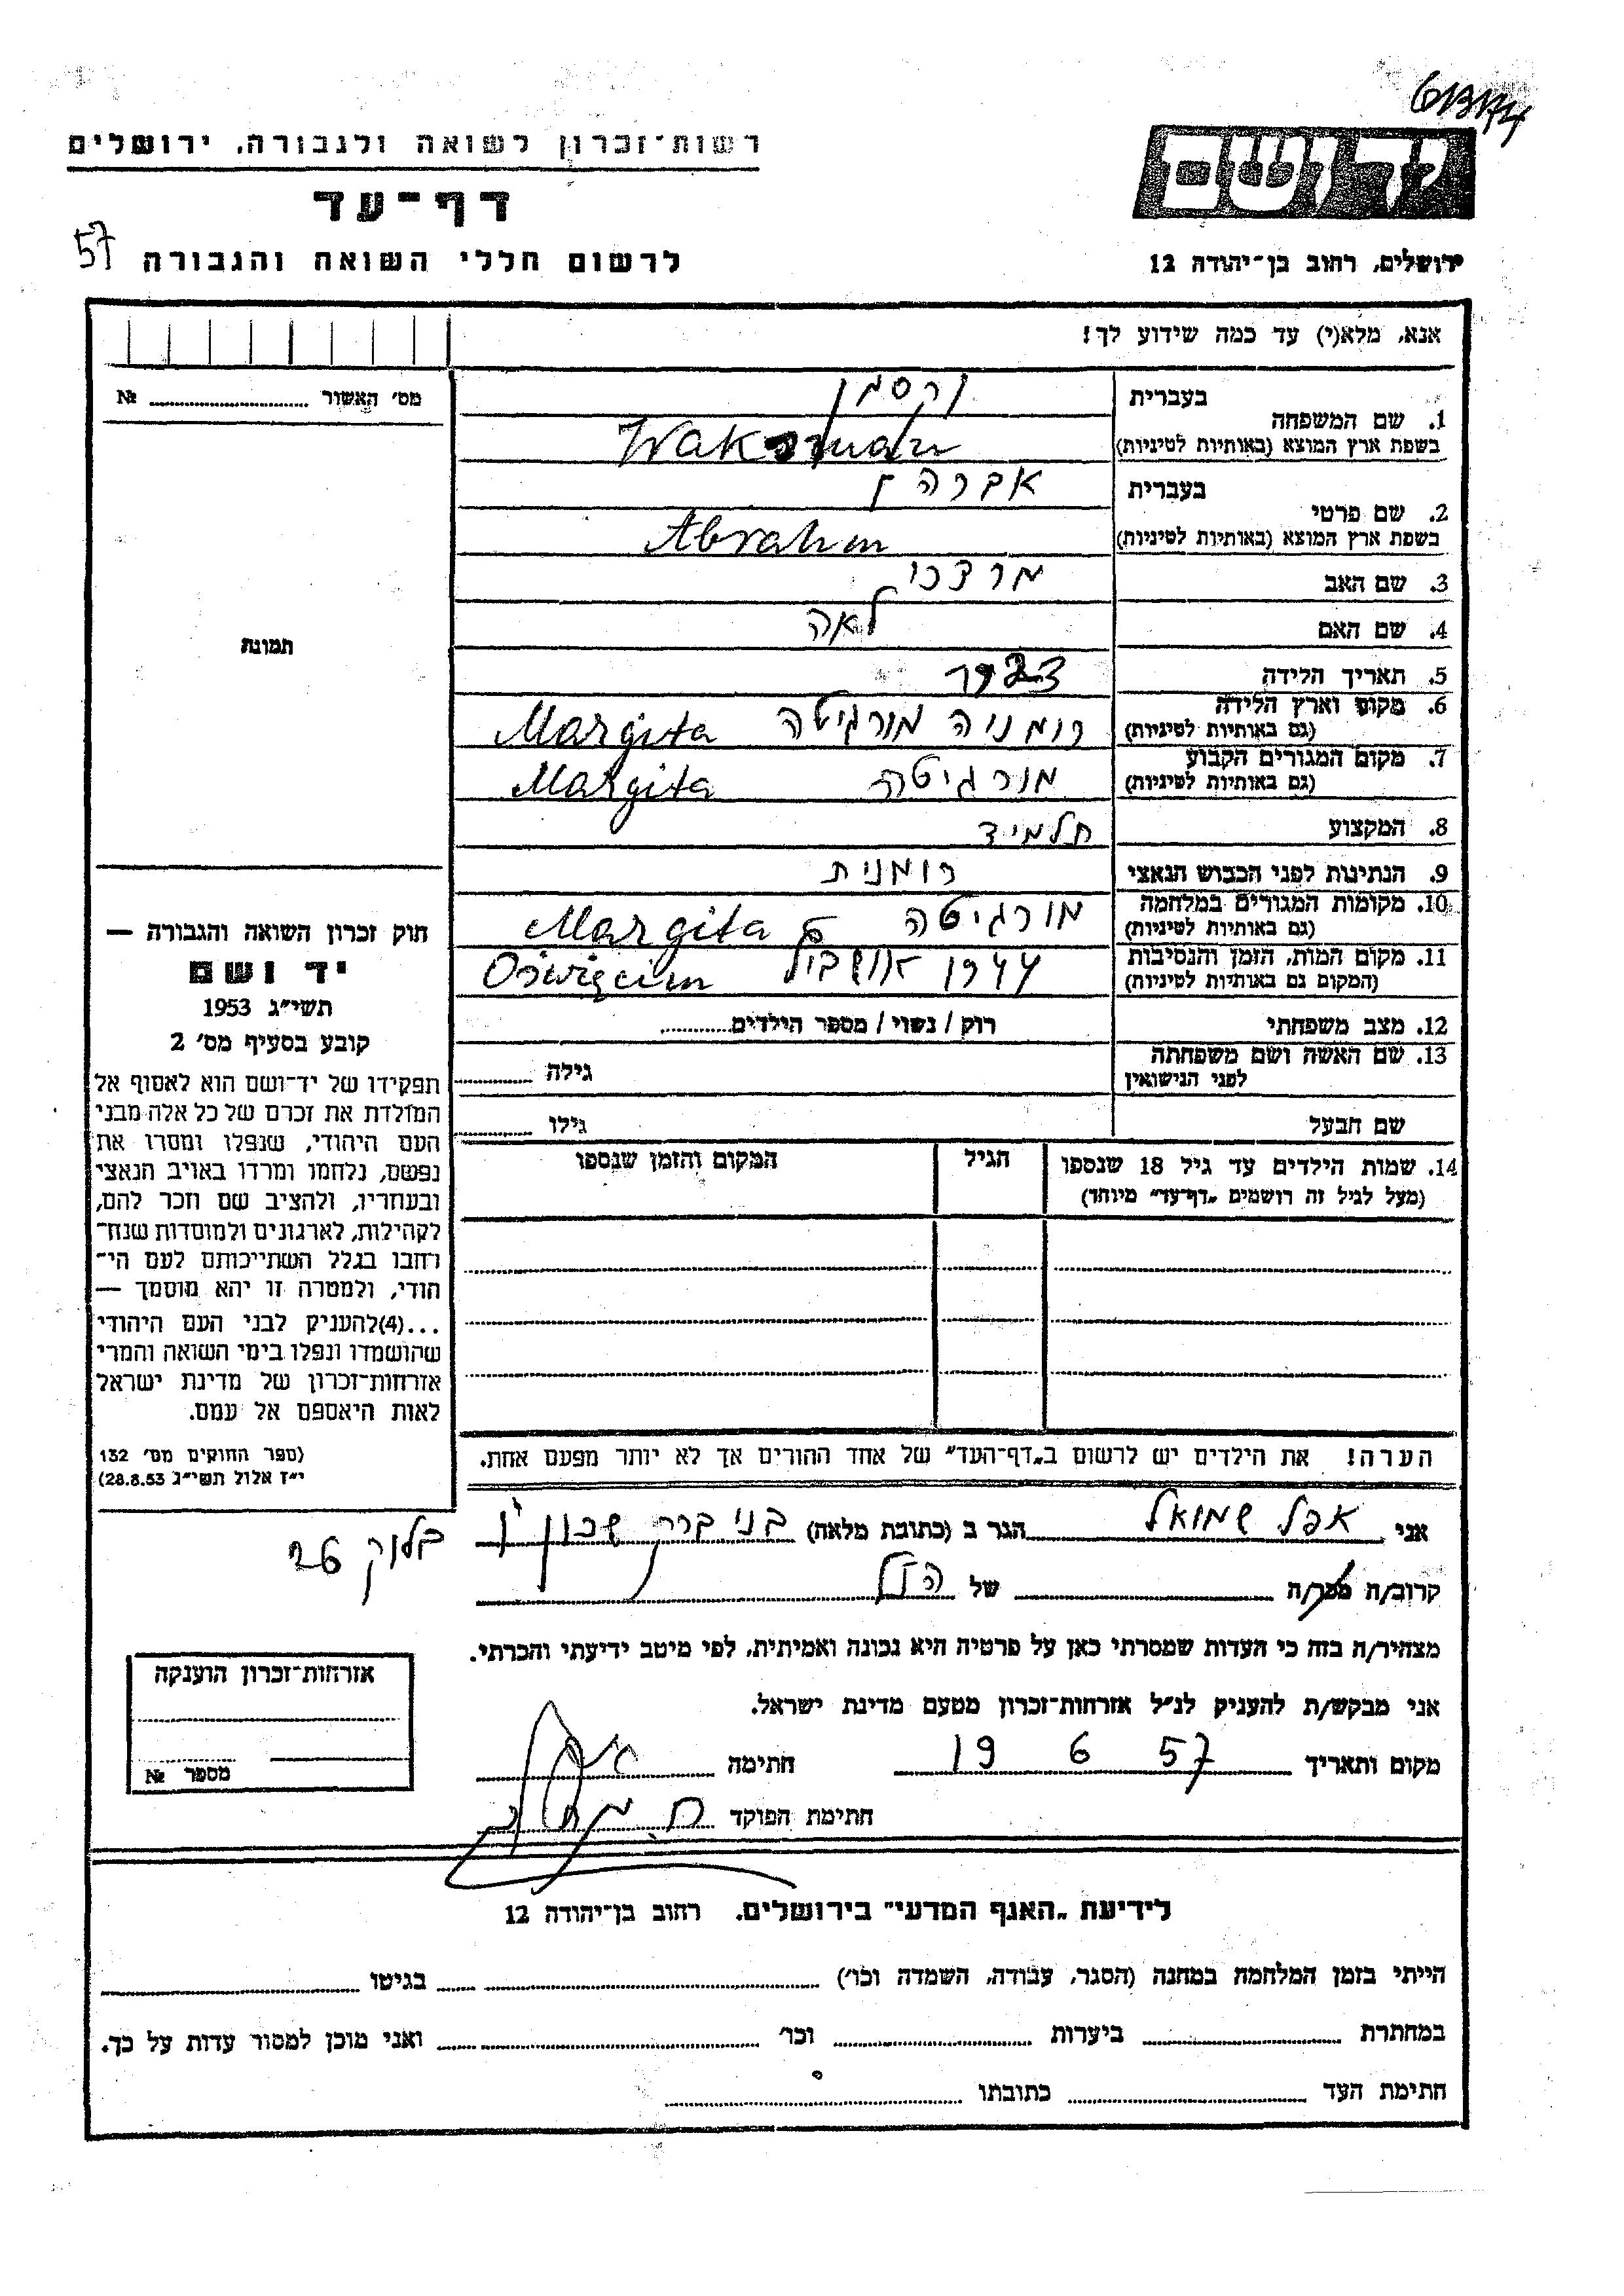 רשות־זכרון לשואה ולגבורה, ירושלים
דף־עד
לרשום חללי השואה והגבורה
57
ירושלים, רחוב בן־יהודה 12
אנא, מלא(י) עד כמה שידוע לך!
מס' האשור №
1. שם המשפחה
בעברית
וקסמן
בשפת ארץ המוצא (באותיות לטיניות)
Waksman
2. שם פרטי
בעברית
אברהם
בשפת ארץ המוצא (באותיות לטיניות)
Abraham
3. שם האב מרדכי
4. שם האם לאה
5. תאריך הלידה
6. מקום וארץ הלידה
(גם באותיות לטיניות)
רומניה מורגיטה Margita
7. מקום המגורים הקבוע
(גם באותיות לטיניות)
מורגיטה Margita
8. המקצוע תלמיד
9. הנתינות לפני הכבוש הנאצי רומנית
10. מקומות המגורים במלחמה
(גם באותיות לטיניות)
מורגיטה Margita
11. מקום המות, הזמן והנסיבות
(המקום גם באותיות לטיניות)
1944 Oświęcim
12. מצב משפחתי רוק / נשוי / מספר הילדים
13. שם האשה ושם משפחתה
לפני הנישואין
גילה
שם הבעל גילו
14. שמות הילדים עד גיל 18 שנספו
(מעל לגיל זה רושמים „דף־עד" מיוחד)
הגיל
המקום והזמן שנספו
תמונה
חוק זכרון השואה והגבורה —
יד ושם
תשי"ג 1953
קובע בסעיף מס' 2
תפקידו של יד־ושם הוא לאסוף אל
המולדת את זכרם של כל אלה מבני
העם היהודי, שנפלו ומסרו את
נפשם, נלחמו ומרדו באויב הנאצי
ובעוזריו, ולהציב שם וזכר להם,
לקהילות, לארגונים ולמוסדות שנח־
רבו בגלל השתייכותם לעם הי־
הודי, ולמטרה זו יהא מוסמך —
...(4)להעניק לבני העם היהודי
שהושמדו ונפלו בימי השואה והמרי
אזרחות־זכרון של מדינת ישראל
לאות היאספם אל עמם.
(ספר החוקים מס' 132
י"ז אלול תשי"ג 28.8.53)
הערה! את הילדים יש לרשום ב„דף־העד" של אחד ההורים אך לא יותר מפעם אחת.
אני אפל שמואל הגר ב (כתובת מלאה) בני ברק שכון
בלוק 26
קרוב/ה מכר/ה של
מצהיר/ה בזה כי העדות שמסרתי כאן על פרטיה היא נכונה ואמיתית, לפי מיטב ידיעתי והכרתי.
אני מבקש/ת להעניק לנ"ל אזרחות־זכרון מטעם מדינת ישראל.
מקום ותאריך 19 6 57 חתימה
חתימת הפוקד
אזרחות־זכרון הוענקה
מספר №
לידיעת „האגף המדעי" בירושלים. רחוב בן־יהודה 12
הייתי בזמן המלחמה במחנה (הסגר, עבודה, השמדה וכו') בגיטו
במחתרת ביערות וכו' ואני מוכן למסור עדות על כך.
חתימת העד כתובתו